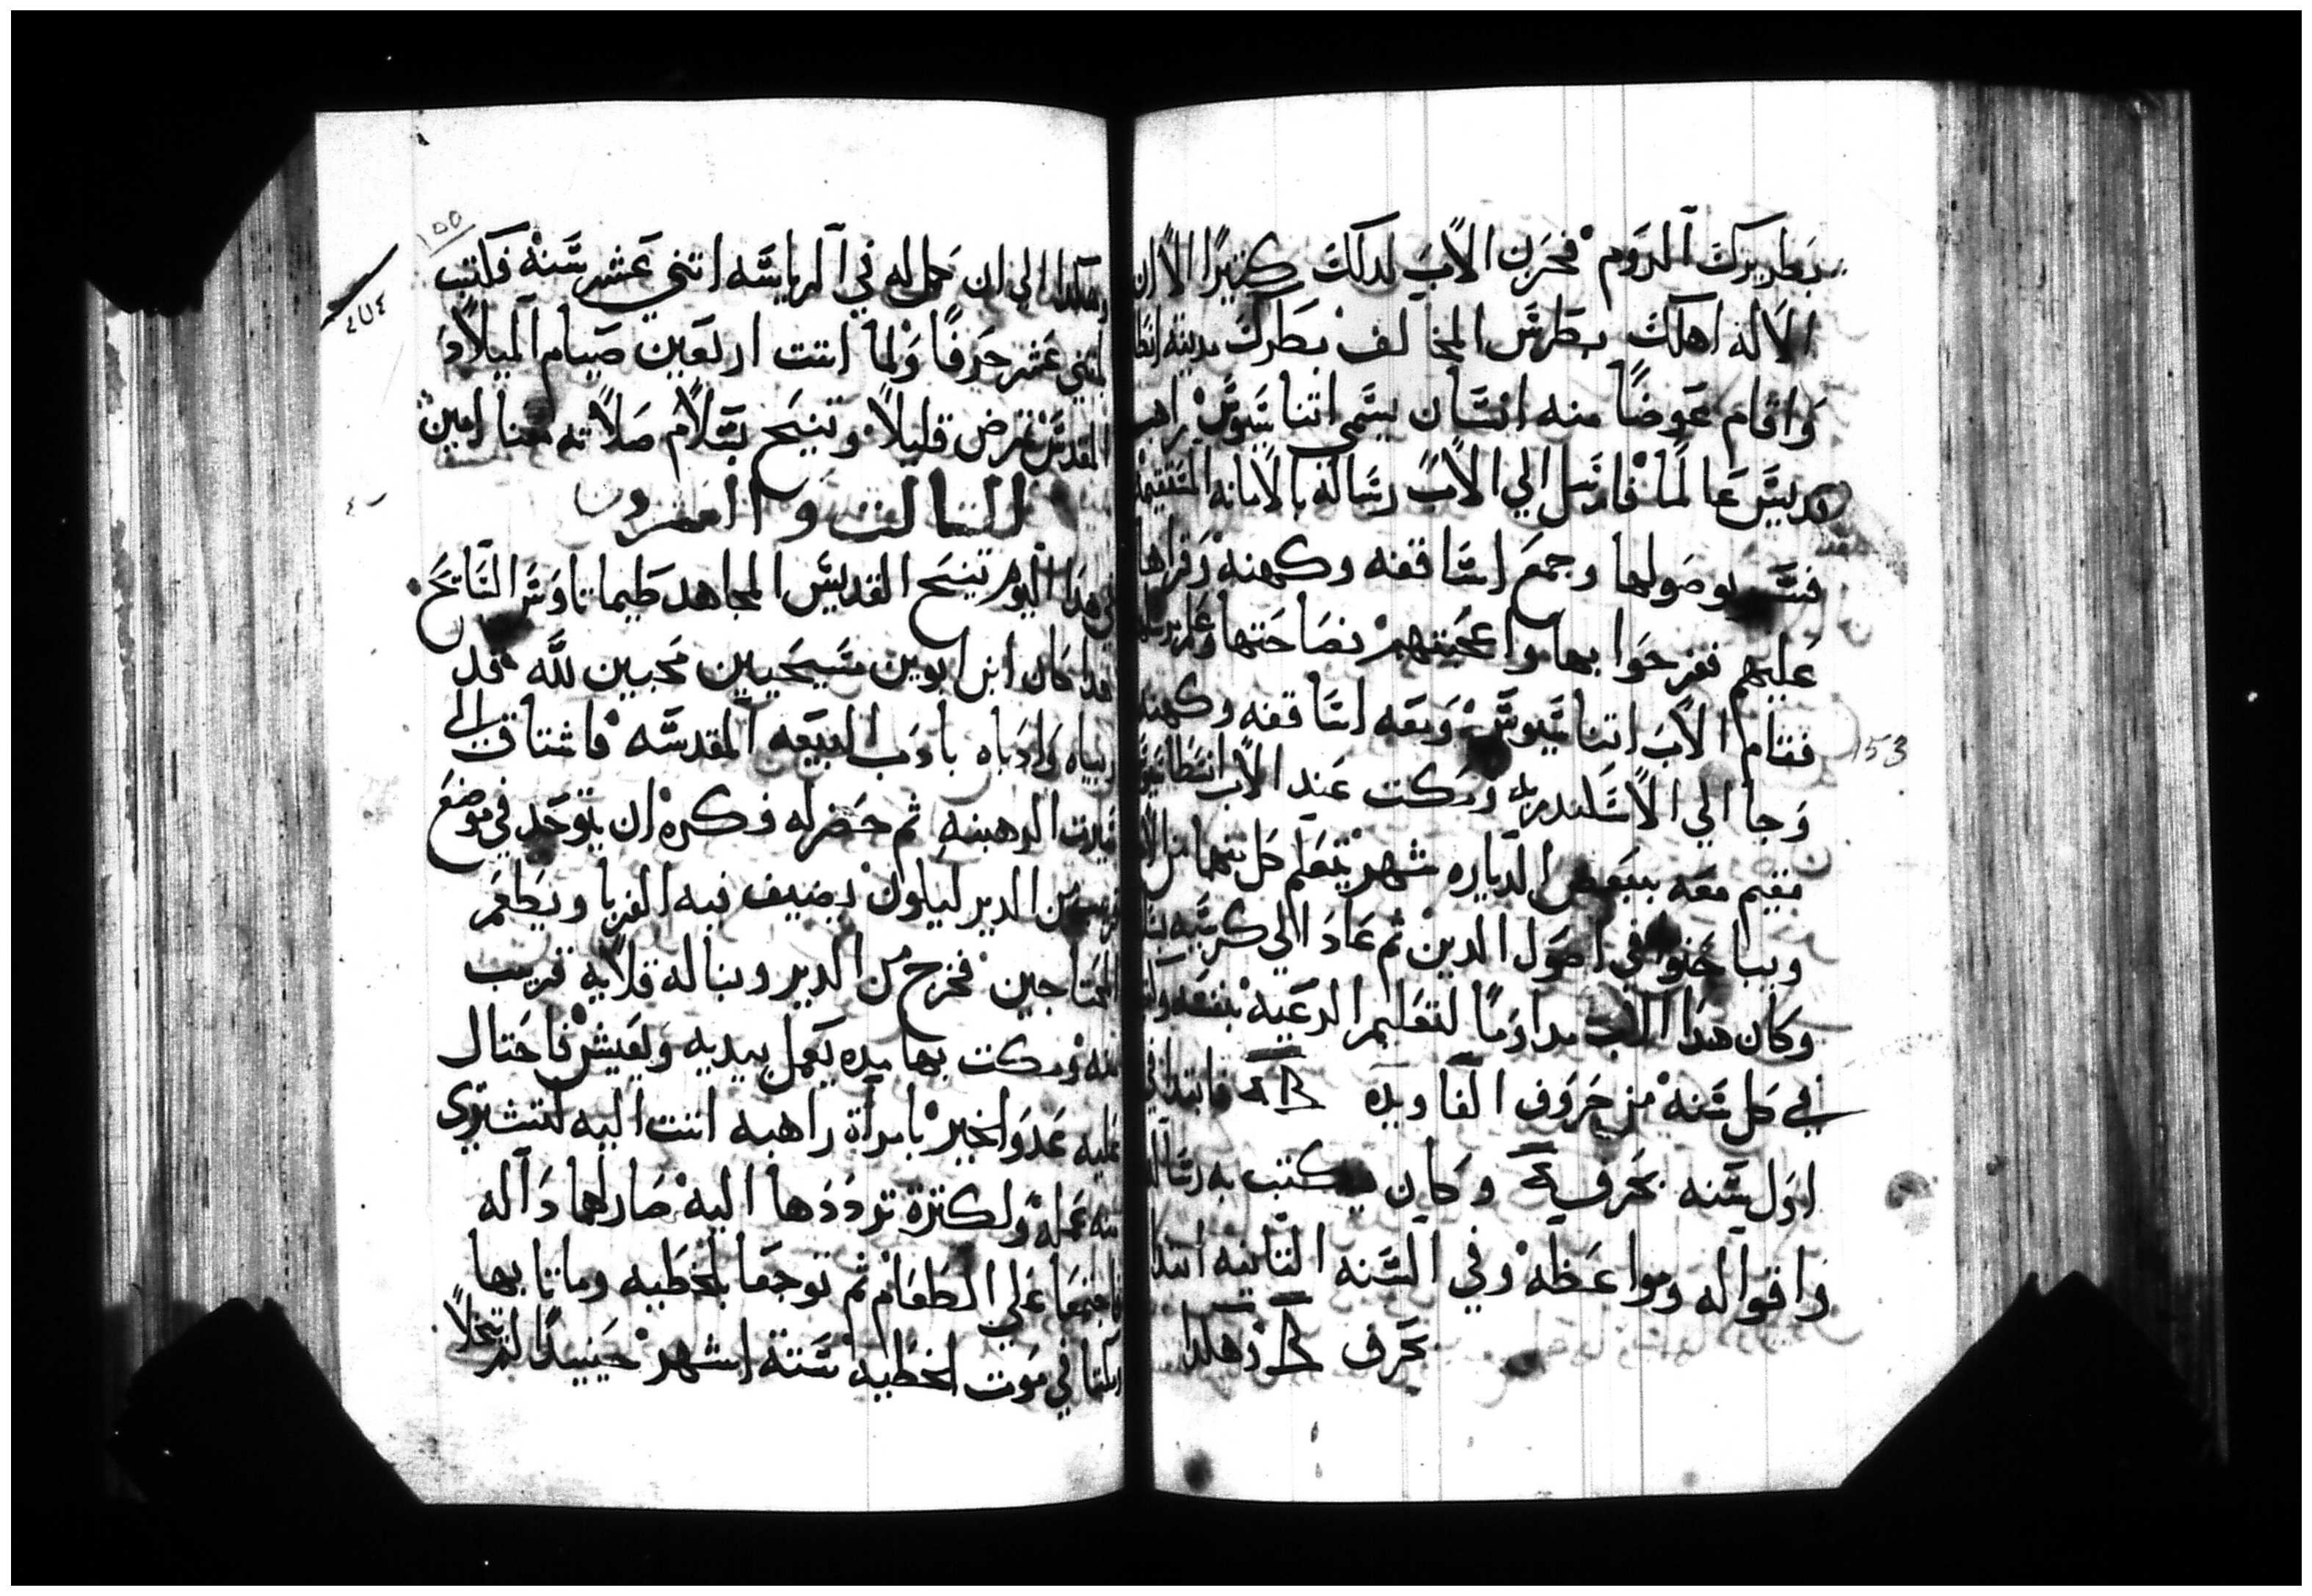 بطريرك الروم فحزن الاب لدلك كثيرًا الا ان
الاله اهلك بطرس المخالف بطرك مدينة انطا
واقام عوضًا منه انسان يسمي اتناسيوس راهب
قديس عالمًا فارسل الي الاب رساله بالامانه المستقيمه
فسر بوصولها وجمع اساقفه وكهنه وقراها
عليهم ففرحوا بها واعجبتهم فصاحتها
فقام الاب اتناسيوس ومعه اساقفه وكهنه
وجا الي الاسكندريه ومكت عند الاب انسطاسيوس
مقيم معه ببعض الدياره شهر يتعلم كل منهما من الاخر
ويباحتوا في اصول الدين ثم عاد الي كرسيه
وكان هدا الاب مداومًا لتعليم الرعيه بنفسه
في كل سنه من حروف الفا ويده فابتدا في
اول سنه بحرف وكان يكتب به رسالله
واقواله ومواعظه وفي السنه التانيه ابتدا
بحرف وهكدا
١٥٥
وهكدا الي ان كمل له في الرياسه اتني عشر سنه فكتب
اتني عشر حرفًا ولما اتت اربعين صيام الميلاد
المقدس تمرض قليلاً وتنيح بسلام صلاته معنا امين
٤٧٤
التالت والعشرون
في هدا اليوم تنيح القديس المجاهد طيماتاوس السايح
هدا كان ابن ابوين مسيحيين محبين لله قد
ربياه وادباه باداب البيعه المقدسه فاشتاق الي
سيرت الرهبنه ثم حضر له فكره ان يتوحد في موضع
قريب من الدير ليكون يضيف فيه الغربا ويطعم
المحتاجين فخرج من الدير وبنا له قلايه قريب
منه ومكت بها مده يعمل بيديه ويعيش فاحتال
عليه عدو الخير بامراة راهبه اتت اليه لتشتري
منه عمله ولكترة ترددها اليه صار لهما داله
فاجتمعا علي الطعام ثم توجعا بالخطيه وماتا بها
وكتا في موت الخطيه ستة اشهر حينيدًا لم يتخلا
153